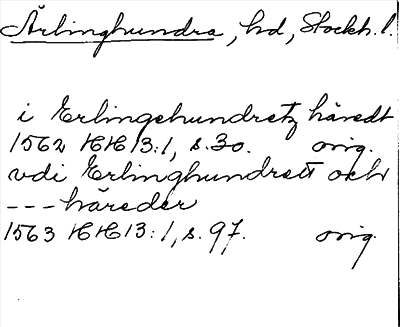 Ärlinghundra, hd, Stockh. l.
i Erlingehundretz häredt
1562 HH 13:1, s. 30. orig.
vdi Erlinghundrett och
---häreder
1563 HH 13:1, s. 97. orig.